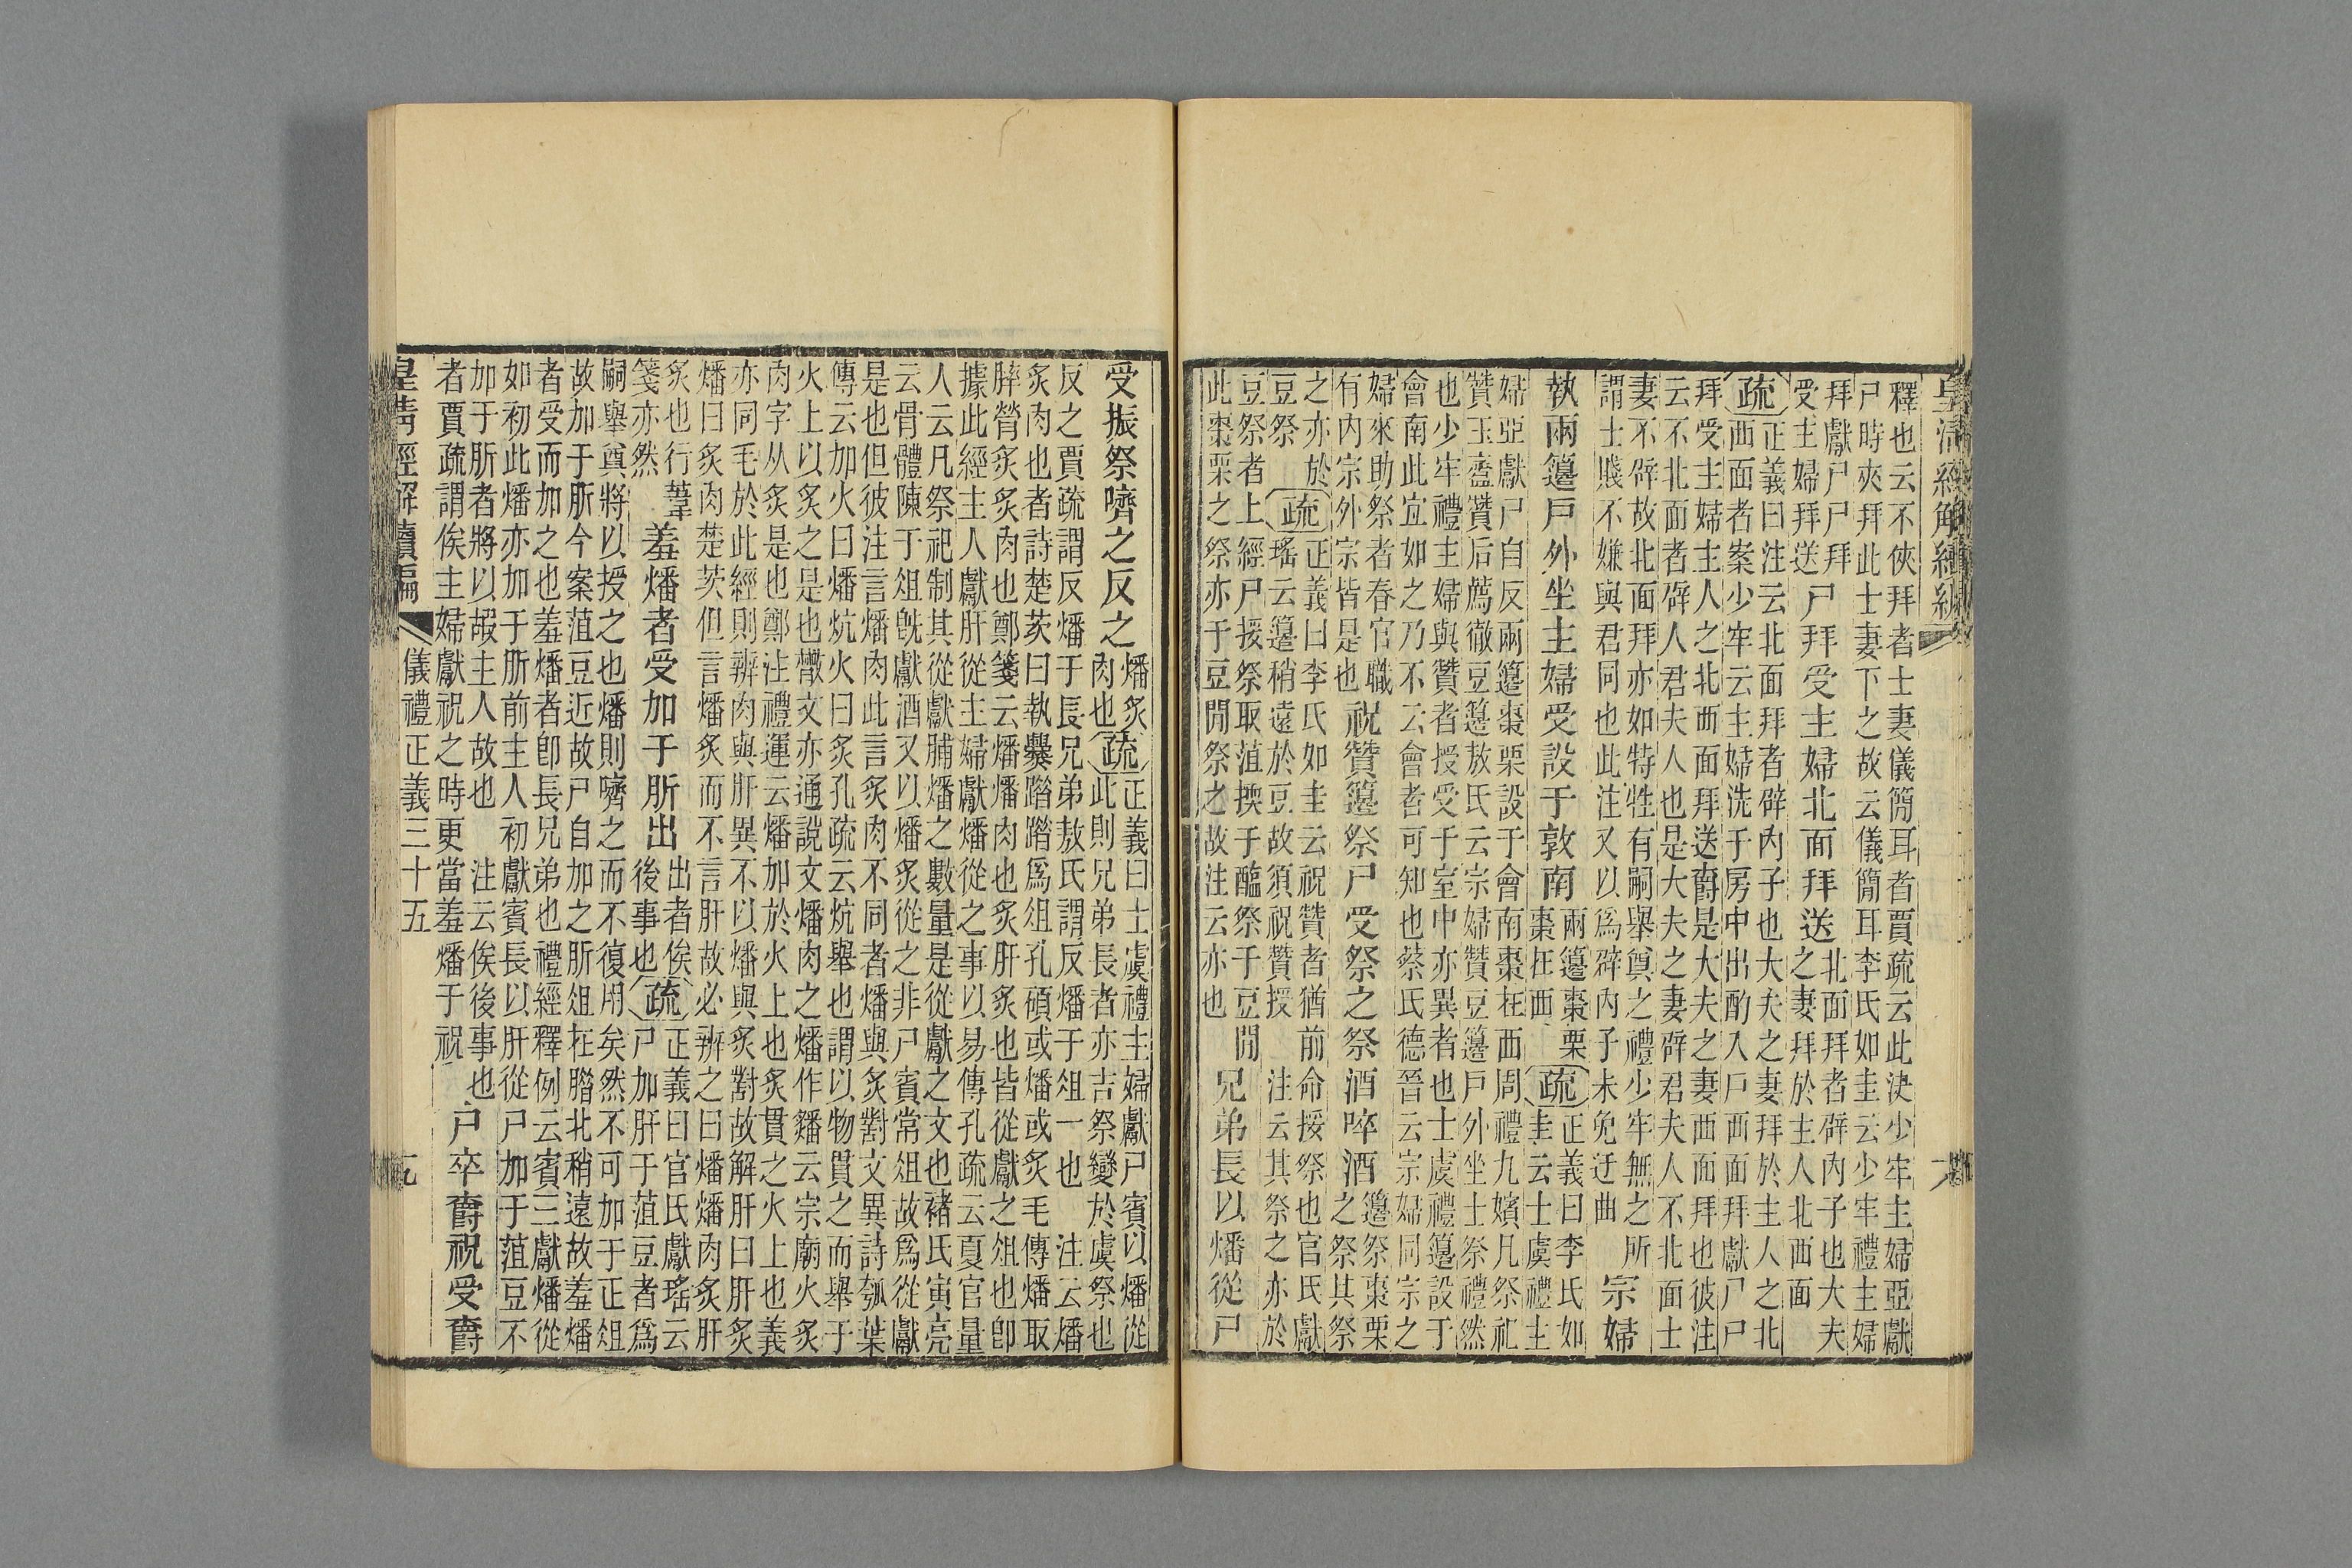 皇清經解續編
釋也云不俠拜者士妻儀簡耳者賈疏云此決少牢主婦亞獻
尸時夾拜此士妻下之故云儀簡耳李氏如圭云少牢禮主婦
拜獻尸尸拜
受主婦拜送尸拜受主婦北面拜送北面拜者辟內子也大夫
之妻拜於主人北西面
疏正義曰注云北面拜者辟內子也大夫之妻拜於主人之北
西面者案少牢云主婦洗于房中出酌入戶西面拜獻尸尸
拜受主婦主人之北西面拜送爵是大夫之妻西面拜也彼注
云不北面者辟人君夫人也是大夫之妻辟君夫人不北面士
妻不辟故北面拜亦如特牲有嗣舉奠之禮少牢無之所
謂士賤不嫌與君同也此注又以為辟內子未免迂曲
宗婦
執兩籩戶外坐主婦受設于敦南兩籩棗栗
棗在西
疏正義曰李氏如
圭云士虞禮主
婦亞獻尸自反兩籩棗栗設于會南棗在西周禮九嬪凡祭祀
贊玉齍贊后薦徹豆籩敖氏云宗婦贊豆籩戶外坐士祭禮然
也少牢禮主婦與贊者授受于室中亦異者也士虞禮籩設于
會南此宜如之乃不云會者可知也蔡氏德晉云宗婦同宗之
婦來助祭者春官職
有內宗外宗皆是也
祝贊籩祭尸受祭之祭酒啐酒籩祭棗栗
之祭其祭
之亦於
豆祭
疏正義曰李氏如圭云祝贊者猶前命挼祭也官氏獻
瑤云籩稍遠於豆故須祝贊授注云其祭之亦於
豆祭者上經尸挼祭取菹㨎于醢祭于豆閒
此棗栗之祭亦于豆閒祭之故注云亦也
兄弟長以燔從尸
受振祭嚌之反之燔炙
肉也
疏正義曰士虞禮主婦獻尸賓以燔從
此則兄弟長者亦吉祭變於虞祭也
反之賈疏謂反燔于長兄弟敖氏謂反燔于俎一也注云燔
炙肉也者詩楚茨曰執爨踖踖為俎孔碩或燔或炙毛傳燔取
膟膋炙炙肉也鄭箋云燔燔肉也炙肝炙也皆從獻之俎也卽
據此經主人獻肝從主婦獻燔從之事以易傳孔疏云夏官量
人云凡祭祀制其從獻脯燔之數量是從獻之文也褚氏寅亮
云骨體陳于俎旣獻酒又以燔炙從之非尸賓常俎故為從獻
是也但彼注言燔肉此言炙肉不同者燔與炙對文異詩瓠葉
傳云加火曰燔炕火曰炙孔疏云炕舉也謂以物貫之而舉于
火上以炙之是也㪚文亦通說文燔肉之燔作䊩云宗廟火炙
肉字从炙是也鄭注禮運云燔加於火上也炙貫之火上也義
亦同毛於此經則辨肉與肝異不以燔與炙對故解肝曰肝炙
燔曰炙肉楚茨但言燔炙而不言肝故必辨之曰燔燔肉炙肝
炙也行葦
箋亦然
羞燔者受加于肵出出者俟
後事也
疏正義曰官氏獻瑤云
尸加肝于菹豆者為
嗣舉奠將以授之也燔則嚌之而不復用矣然不可加于正俎
故加于肵今案菹豆近故尸自加之肵俎在腊北稍遠故羞燔
者受而加之也羞燔者卽長兄弟也禮經釋例云賓三獻燔從
如初此燔亦加于肵前主人初獻賓長以肝從尸加于菹豆不
加于肵者將以嘏主人故也注云俟後事也
者賈疏謂俟主婦獻祝之時更當羞燔于祝
尸卒爵祝受爵
皇清經解續編
儀禮正義三十五